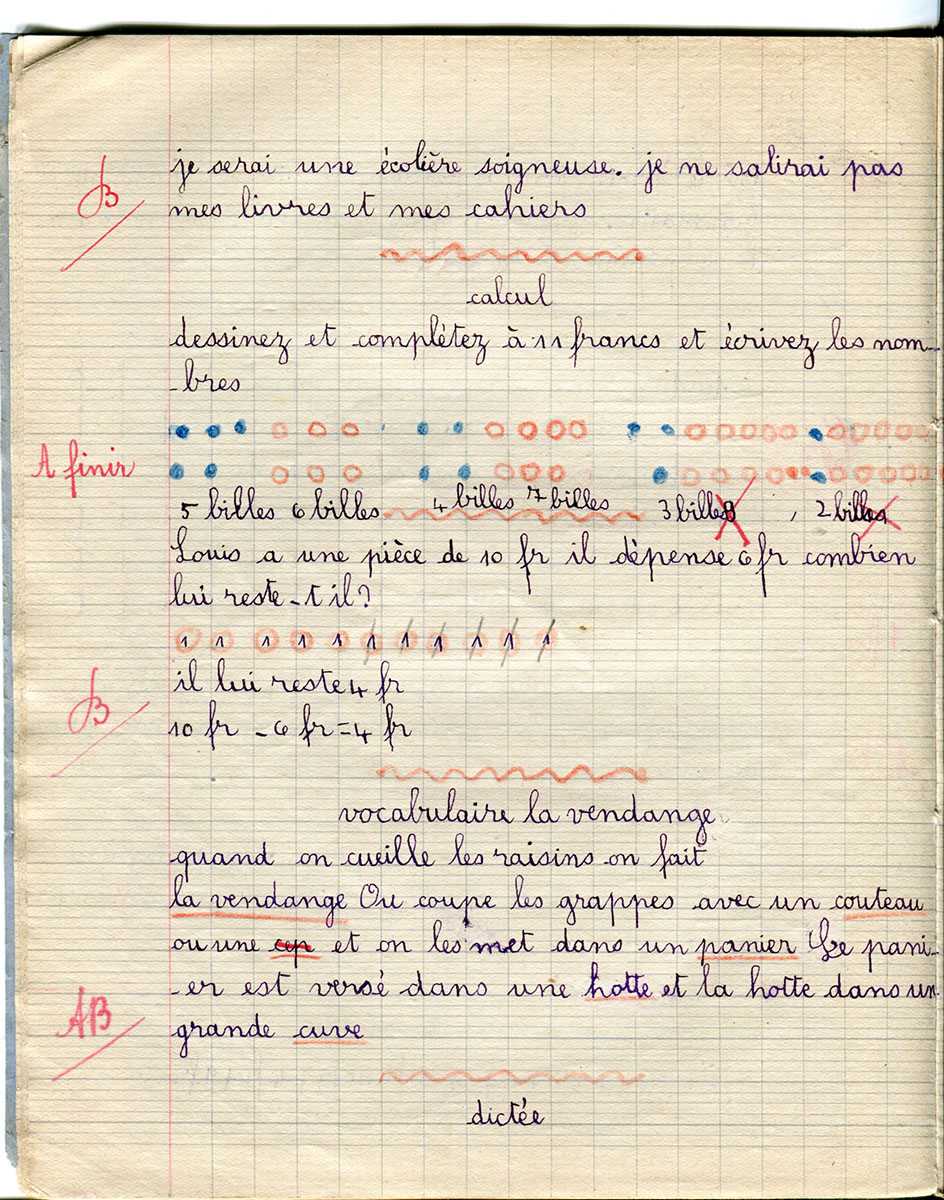 B
je serai une écolière soigneuse. je ne salirai pas
mes livres et mes cahiers
calcul
dessinez et complétez à 11 francs et écrivez les nom-
-bres
A finir
5 billes 6 billes 4 billes 7 billes 3 billes 8 , 2 billes
Louis a une pièce de 10 fr il dépense 6 fr combien
lui reste-t il?
1 1 1 1 1 1 1 1 1 1 1
il lui reste 4 fr
B
10 fr - 6 fr = 4 fr
vocabulaire la vendange
quand on cueille les raisins on fait
la vendange Ou coupe les grappes avec un couteau
ou une cep et on les met dans un panier Le pani-
-er est versé dans une hotte et la hotte dans un
AB
grande cuve
dictée